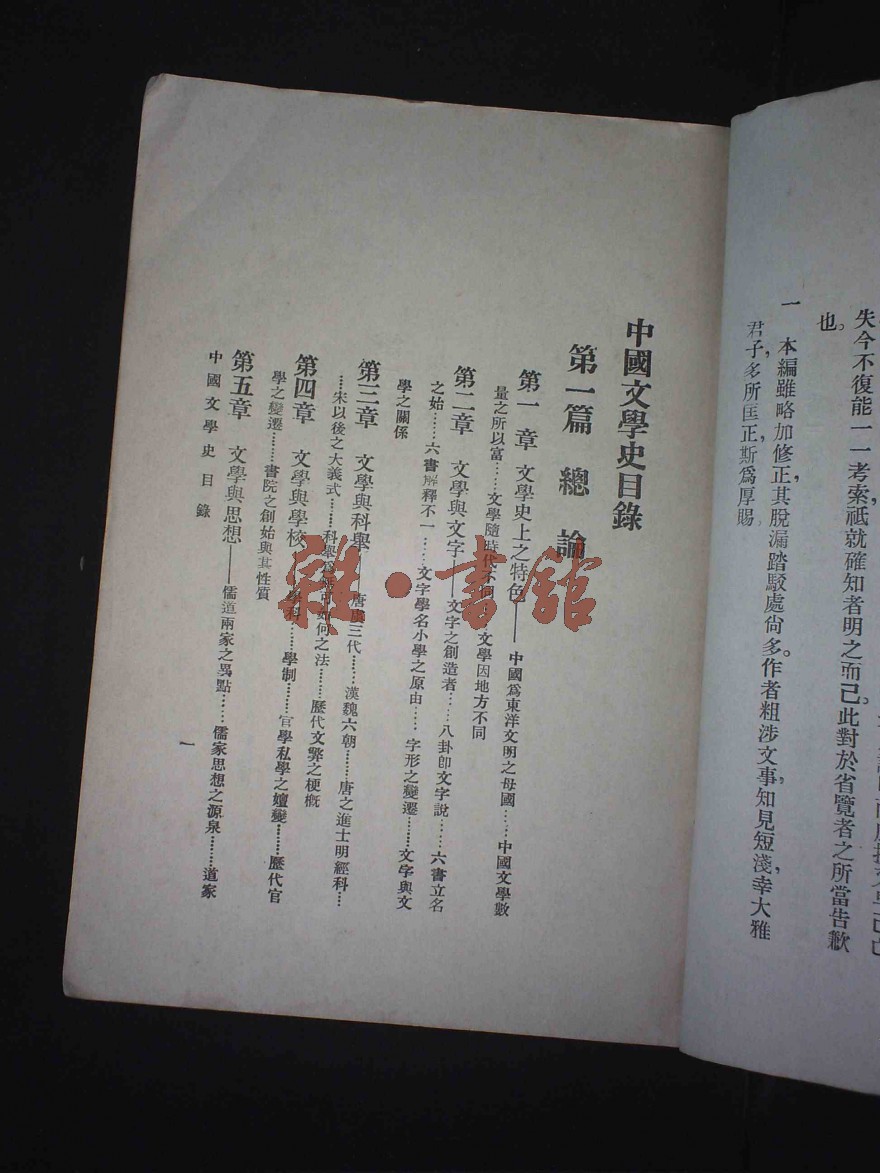 失今不復能一一考索祗就確知者明之而已此對於省覽者之所當告歉
也。
一 本編雖略加修正其脫漏踏駁處尙多。作者粗涉文事，知見短淺，幸大雅
君子，多所匡正，斯爲厚賜
中國文學史目錄
第一篇 總論
第一章 文學史上之特色——中國爲東洋文明之母國……中國文學數
量之所以富……文學隨時代不同……文學因地方不同
第二章 文學與文字——文字之創造者……八卦卽文字說……六書立名
之始……六書解釋不一……文字學名小學之原由……字形之變遷……文字與文
學之關係
第三章 文學與科舉——唐虞三代……漢魏六朝……唐之進士明經科…
……宋以後之大義式……科舉爲無可如何之法……歷代文弊之梗概
第四章 文學與學校——學科……學制……官學私學之嬗變……歷代官
學之變遷……書院之創始與其性質
第五章 文學與思想——儒道兩家之異點……儒家思想之源泉……道家
中國文學史目錄
一
雜·書館